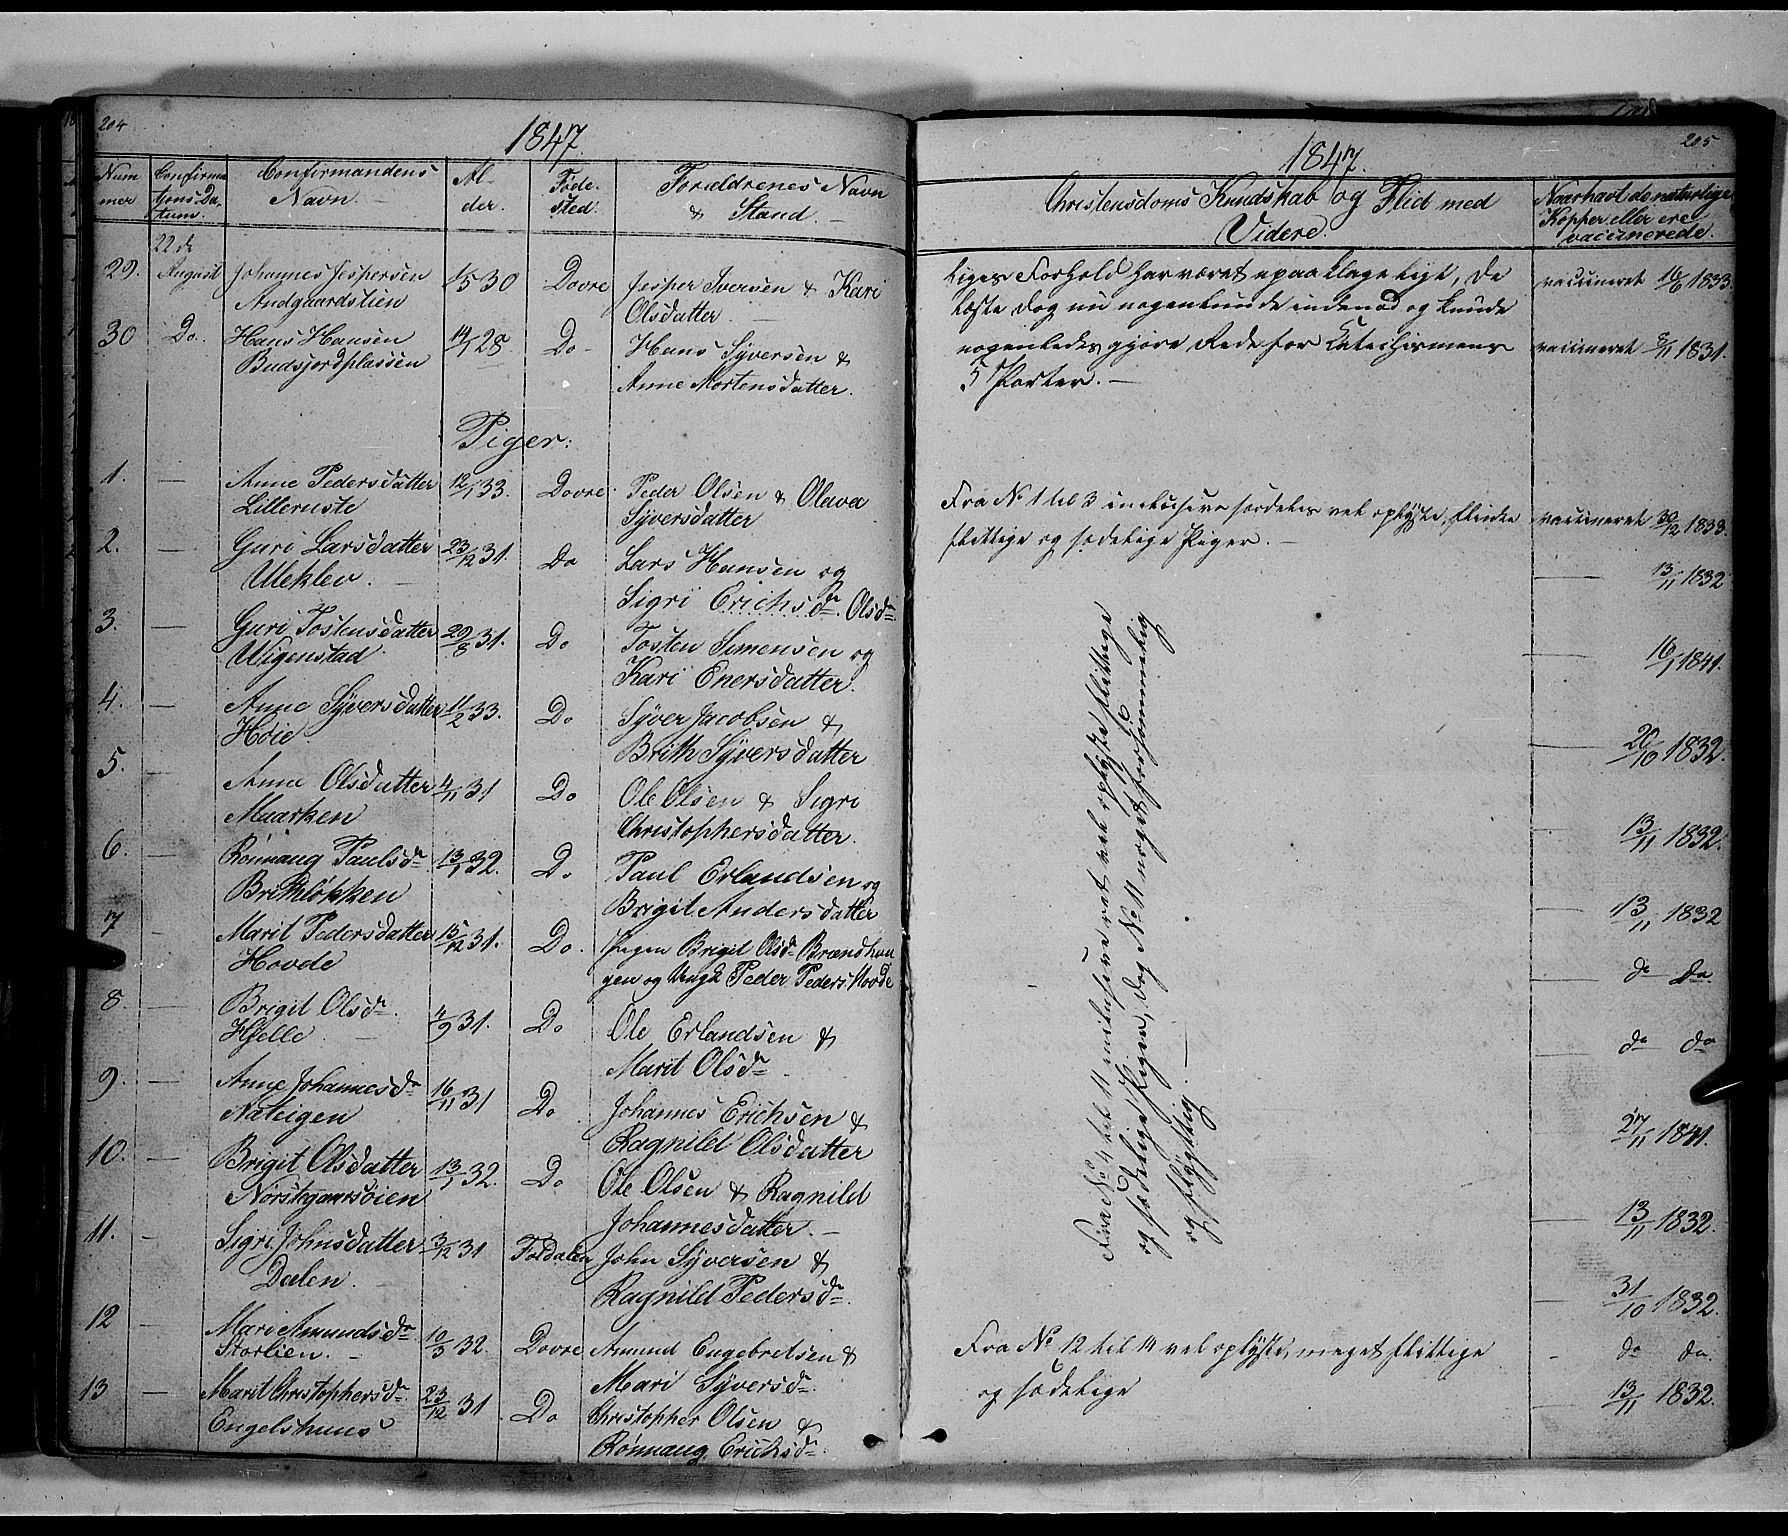 204
1847.
Num
mer
Confirma
tions Da
tum.
Confirmandens
Navn.
Al-
der.
Føde-
sted.
Forældrenes Navn
& Stand.
29. 22 de August Johannes Jespersen 1/5 30 Dovre Jesper Iversen & Kari
Andgaardslien Olsdatter
30 Do. Hans Hansen 14/1 28. Do Hans Syversen &
Budsjordplassen Anne Mortensdatter.
Piger:
1. — Anne Pedersdatter 12/1 33. Dovre. Peder Olsen & Olava
Lilleruste Syversdatter
2. — Guri Larsdatter 23/12 31. Do Lars Hansen og
Uleklev. Sigri Erichsdr. Olsdr
3. — Guri Tostensdatter 29/8 31. Do Tosten Simensen og
Wigenstad Kari Enersdatter.
4. — Anne Syversdatter 11/2 33. Do Syver Jacobsen &
Høie. Brith Syversdatter
5. — Anne Olsdatter 4/11 31 Do Ole Olsen & Sigri
Maarken Christophersdatter.
6. — Rønnaug Paulsdr 13/1 32. Do Paul Erlandsen og
Britheløkken Brigit Andersdatter
7 — Marit Pedersdatter 15/12 31. Do. Pigen Brigit Olsdr Brændhau
Hovde gen og Ungk Peder Peders. Hovde
8. — Brigit Olsdr. 4/9 31. Do Ole Erlandsen &
Hjelle. Marit Olsdr
9. — Anne Johannesdr 16/11 31 Do Johannes Erichsen &
Næteigen Ragnild Olsdatter
10. — Brigit Olsdatter 13/1 32. Do Ole Olsen & Ragnild
Norstegaardsøien Johannesdatter.
11. — Sigri Johnsdatter 3/12 31 Foldalen John Syversen &
Dalen. Ragnild Pedersdr.
12 — Mari Amundsdr. 10/3 32. Dovre Amund Engebretsen &
Storlien. Mari Syversdr.
13 — Marit Christophersdr 23/12 31 Do Christopher Olsen &
Engelshuus Rønnaug Erichsdr.
205
1847.
Christensdoms Kundskab og Flid med
Videre.
Naar havt de naturlige
Kopper eller ere
vaccinerede.
Liges Forhold har været upaaklageligt, de vaccineret 16/6 1833.
læste dog nu nogenlunde indenad og kunde
nogenledes gjøre Rede for Catechismens vaccineret 8/11 1831.
5 Parter. —
Fra No 1 til 3 inclusive særdeles vel oplyste, flinke vaccineret 30/12 1833.
flittige og sædelige Piger. —
— 13/11 1832
— 16/1 1841.
— 20/10 1832.
— 13/11 1832.
— 13/11 1832
do do
do do
27/11 1841.
13/11 1832.
31/10 1832.
Fra No 4 til 11 inclusive ret vel oplyste flittige
og sædelige Piger, dog No 11 noget forsømmelig
og flygtig. —
Fra No 12 til 14 vel oplyste, meget flittige — do do.
og sædelige
— 13/11 1832.